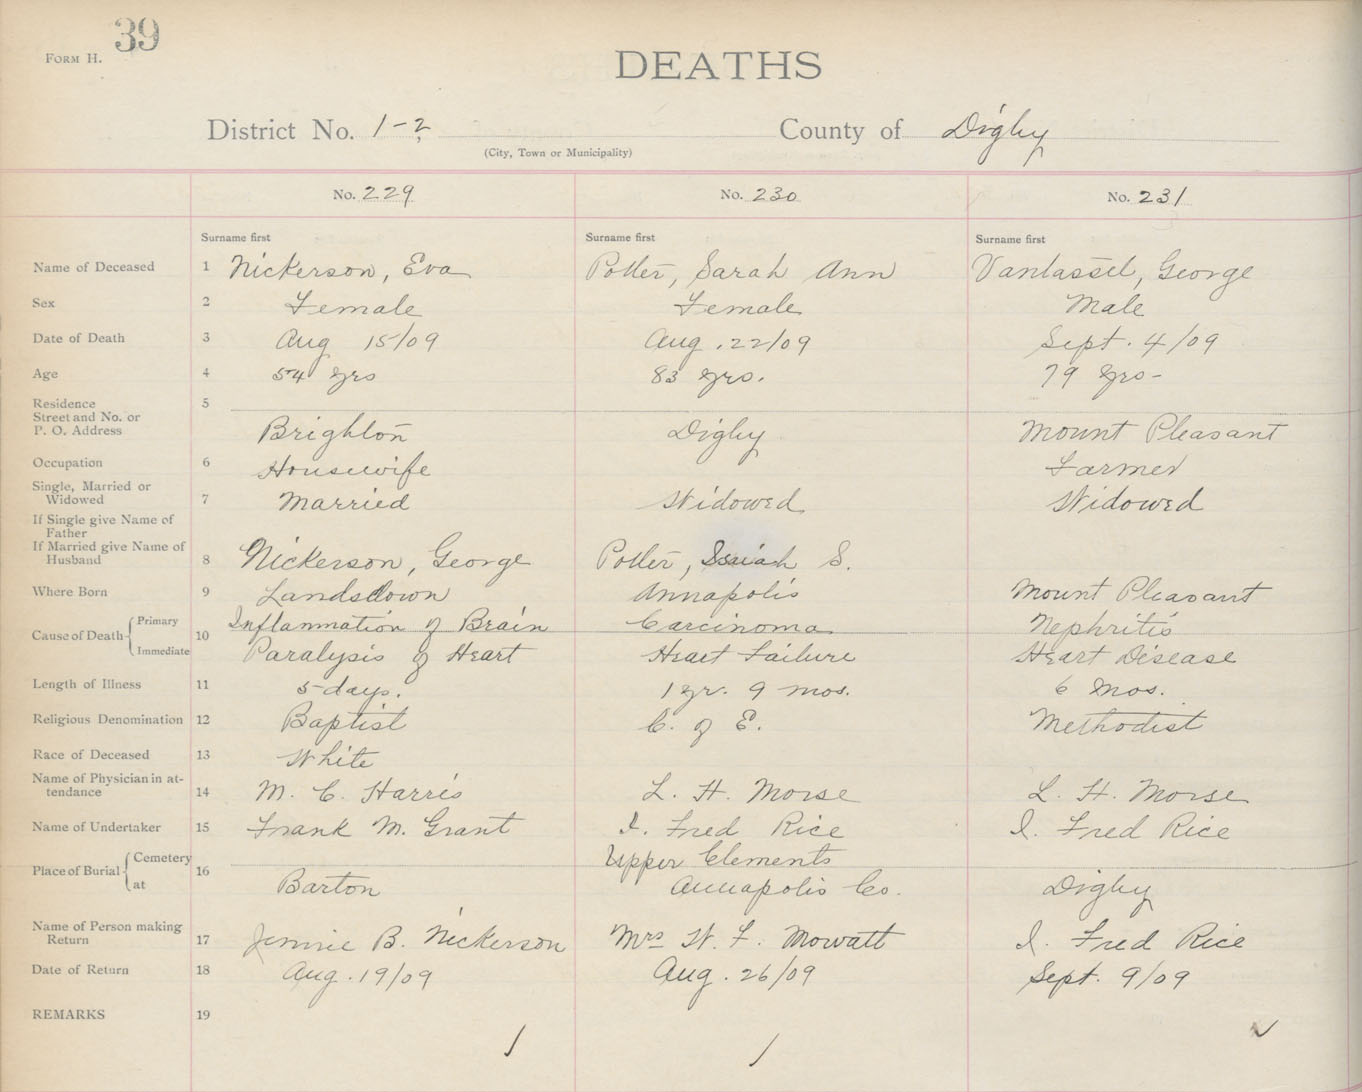 39
FORM H.
DEATHS
District No. 1-2 County of Digby
(City, Town or Municipality)
No. 229 No. 230 No. 231
Surname first Surname first Surname first
Name of Deceased 1 Nickerson, Eva Potter, Sarah Ann Vantassel, George
Sex 2 Female Female Male
Date of Death 3 Aug 15/09 Aug. 22/09 Sept. 4/09
Age 4 54 yrs 83 yrs. 79 yrs-
Residence 5
Street and No. or
P. O. Address Brighton Digby Mount Pleasant
Occupation 6 Housewife Farmer
Single, Married or
Widowed 7 Married Widowed Widowed
If Single give Name of
Father
If Married give Name of
Husband 8 Nickerson, George Potter, Isaiah S.
Where Born 9 Landsdown Annapolis Mount Pleasant
Cause of Death Primary 10 Inflammation of Brain Carcinoma Nephritis
Immediate Paralysis of Heart Heart Failure Heart Disease
Length of Illness 11 5 days. 1 yr. 9 mos. 6 mos.
Religious Denomination 12 Baptist C. of E. Methodist
Race of Deceased 13 White
Name of Physician in at-
tendance 14 M. C. Harris L. H. Morse L. H. Morse
Name of Undertaker 15 Frank M. Grant I. Fred Rice I. Fred Rice
Place of Burial Cemetery 16 Upper Clements
at Barton Annapolis Co. Digby
Name of Person making
Return 17 Jennie B. Nickerson Mrs W. F. Mowatt I. Fred Rice
Date of Return 18 Aug. 19/09 Aug. 26/09 Sept. 9/09
REMARKS 19